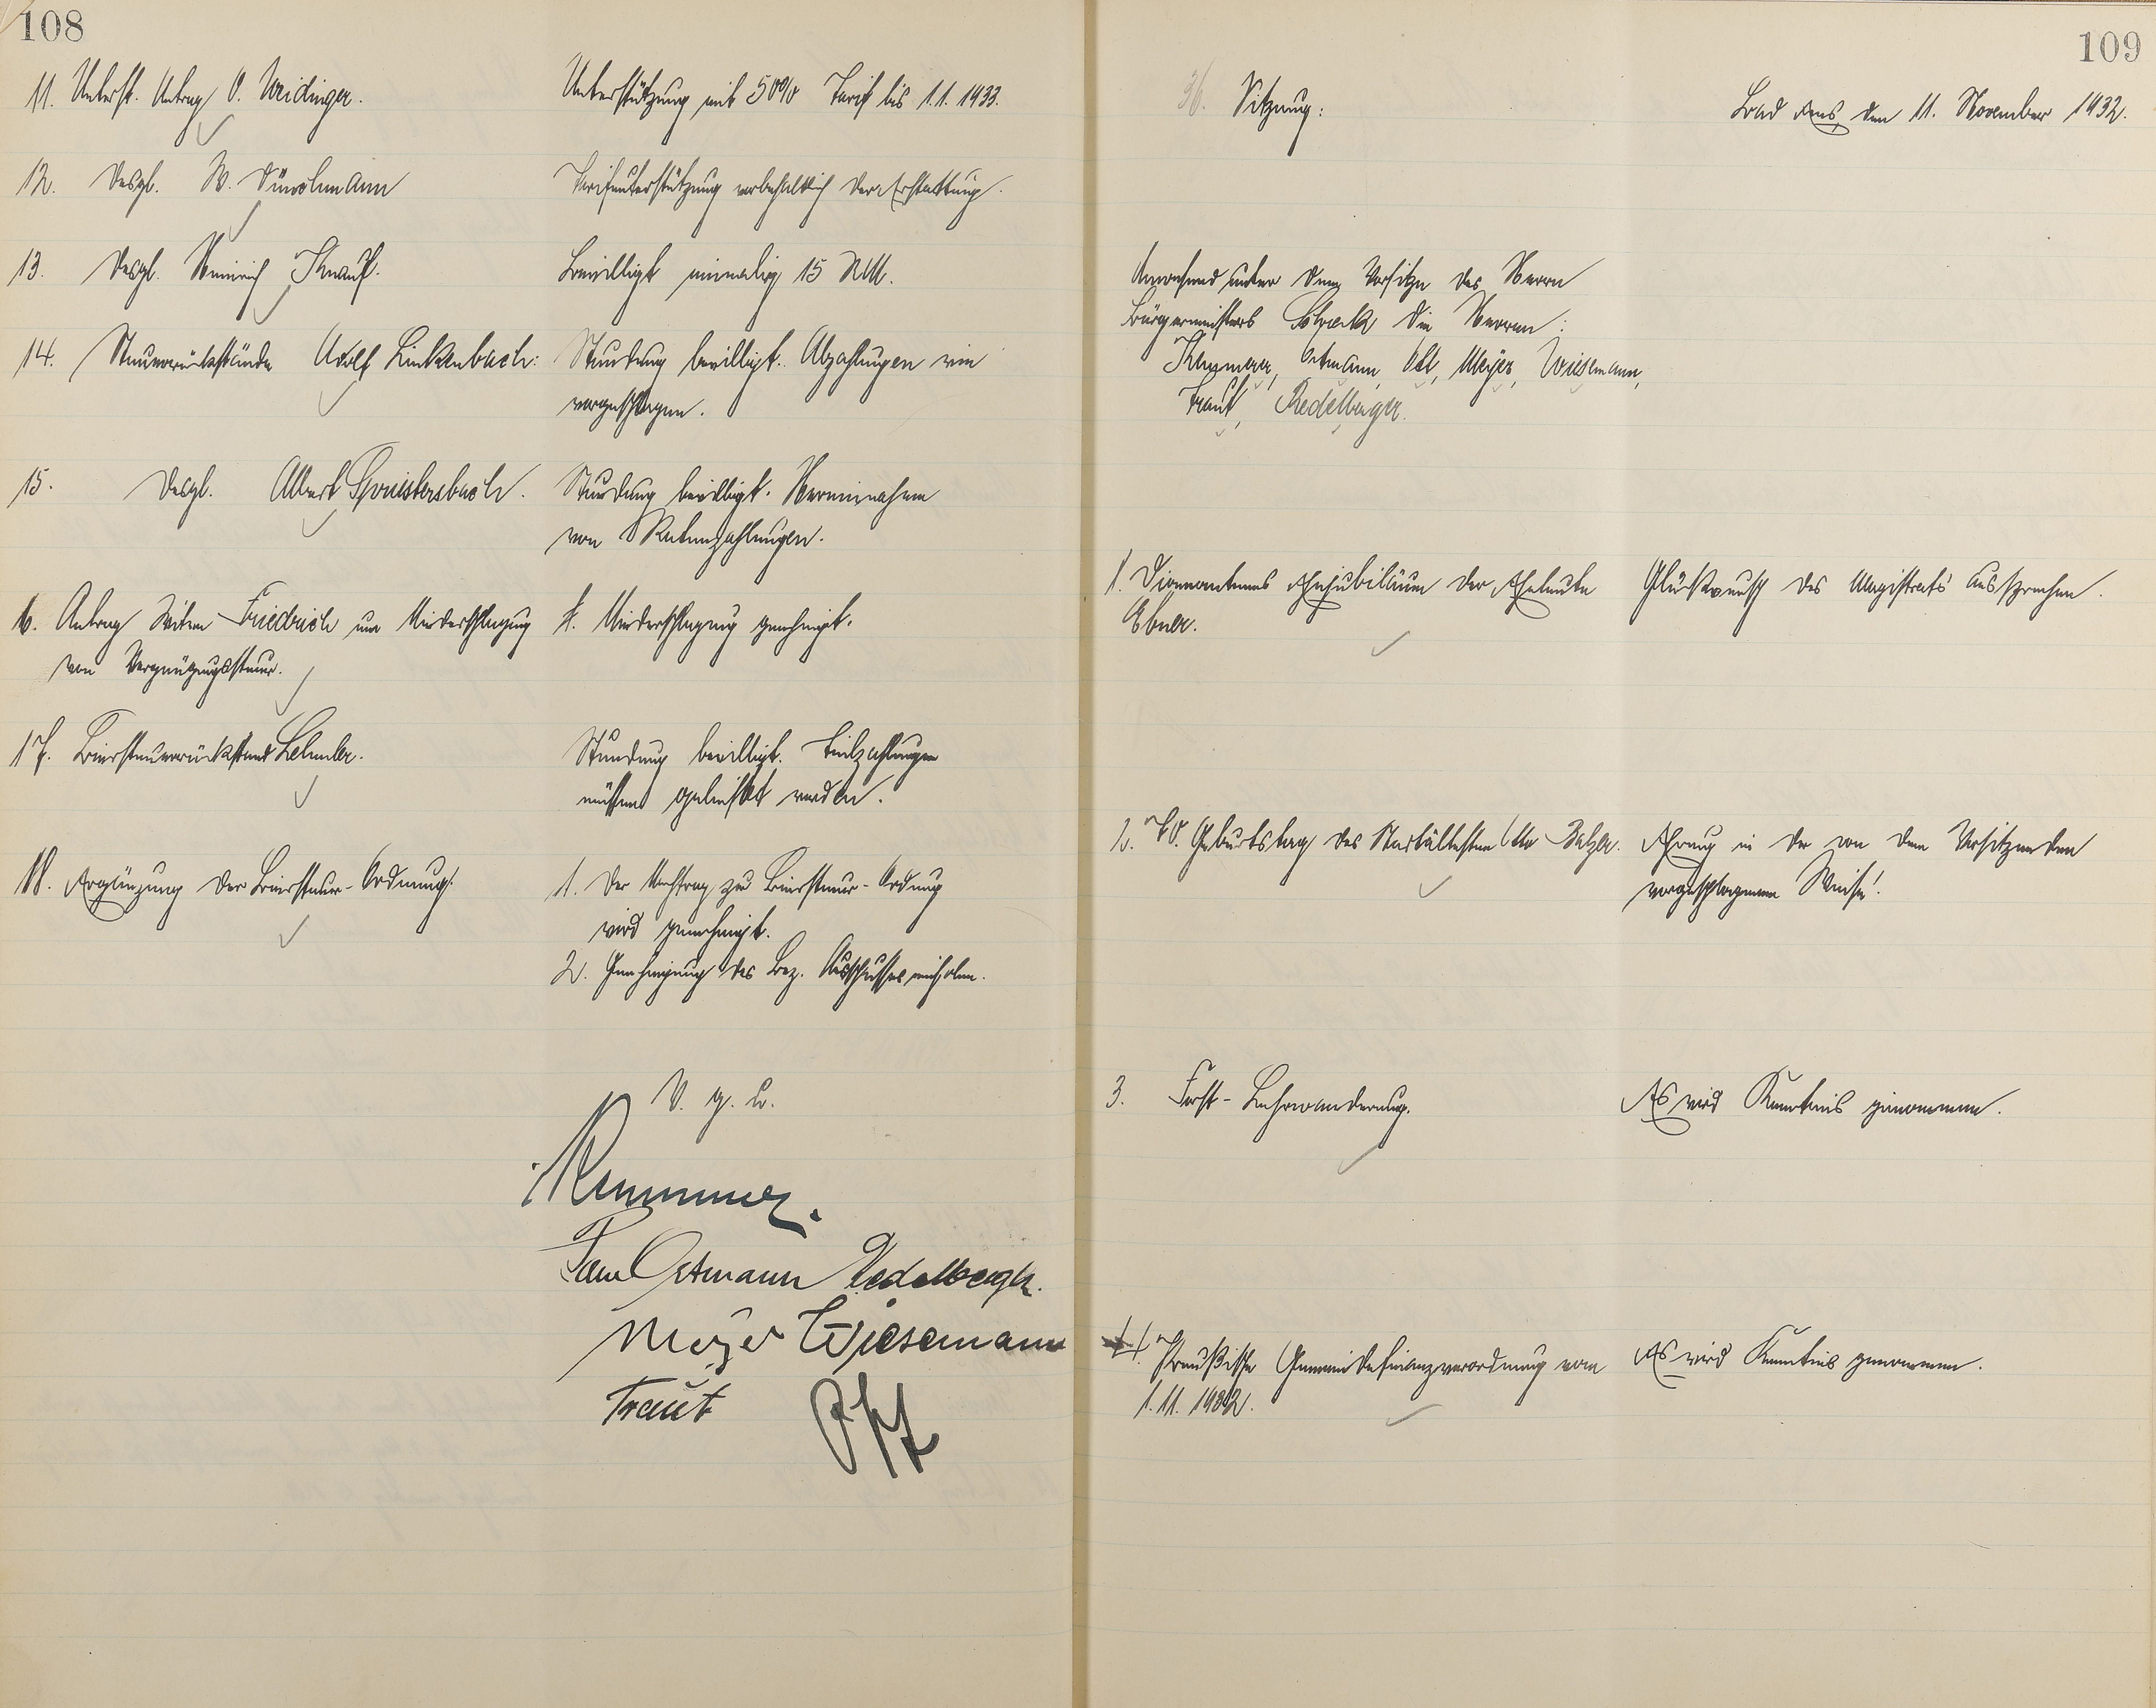 108
11. Unterst. Antrag O. Weidinger.
Unterstützung mit 50% Tarif bis 1.1.1933.
12. Desgl. W.
Tarifunterstützung vorbehaltlich der Erstattung.
13. Desgl. Heinrich Knauf.
Bewilligt einmalig 15 RM.
14. Steuerrückstände Adolf Linkenbach:
Stundung bewilligt. Abzahlungen wie
vorgeschlagen.
15. Desgl. Albert
Stundung bewilligt. Hereinnahme
von Ratenzahlungen.
16. Antrag Witwe Friedrich um Niederschlagung
von Vergnügungssteuer.
Niederschlagung genehmigt.
17. Biersteuerrückstand
Stundung bewilligt. Teilzahlungen
müssen geleistet werden.
18. Ergänzung der Biersteuer-Ordnung.
1. Der Nachtrag zur Biersteuer-Ordnung
wird genehmigt.
2. Genehmigung des Bez. Ausschusses einholen.
V. g. u.
Ostmann Redelberger.
Meyer Wiesemann
Traut Ott
109
36. Sitzung:
Bad Ems, den 11. November 1932.
Anwesend unter dem Vorsitze des Herrn
Bürgermeisters die Herren:
Ostmann, Ott, Meyer, Wiesemann,
Traut, Redelberger.
1. Diamantenes Ehejubiläum der Eheleute
Ebner.
Glückwunsch des Magistrats aussprechen.
2. 70. Geburtstag des Stadtältesten Otto Balzer.
Ehrung in der von dem Vorsitzenden
vorgeschlagenen Weise!
3. Forst-Lehrwanderung.
Es wird Kenntnis genommen.
4. Preußische Gemeindefinanzverordnung vom
1.11.1932.
Es wird Kenntnis genommen.